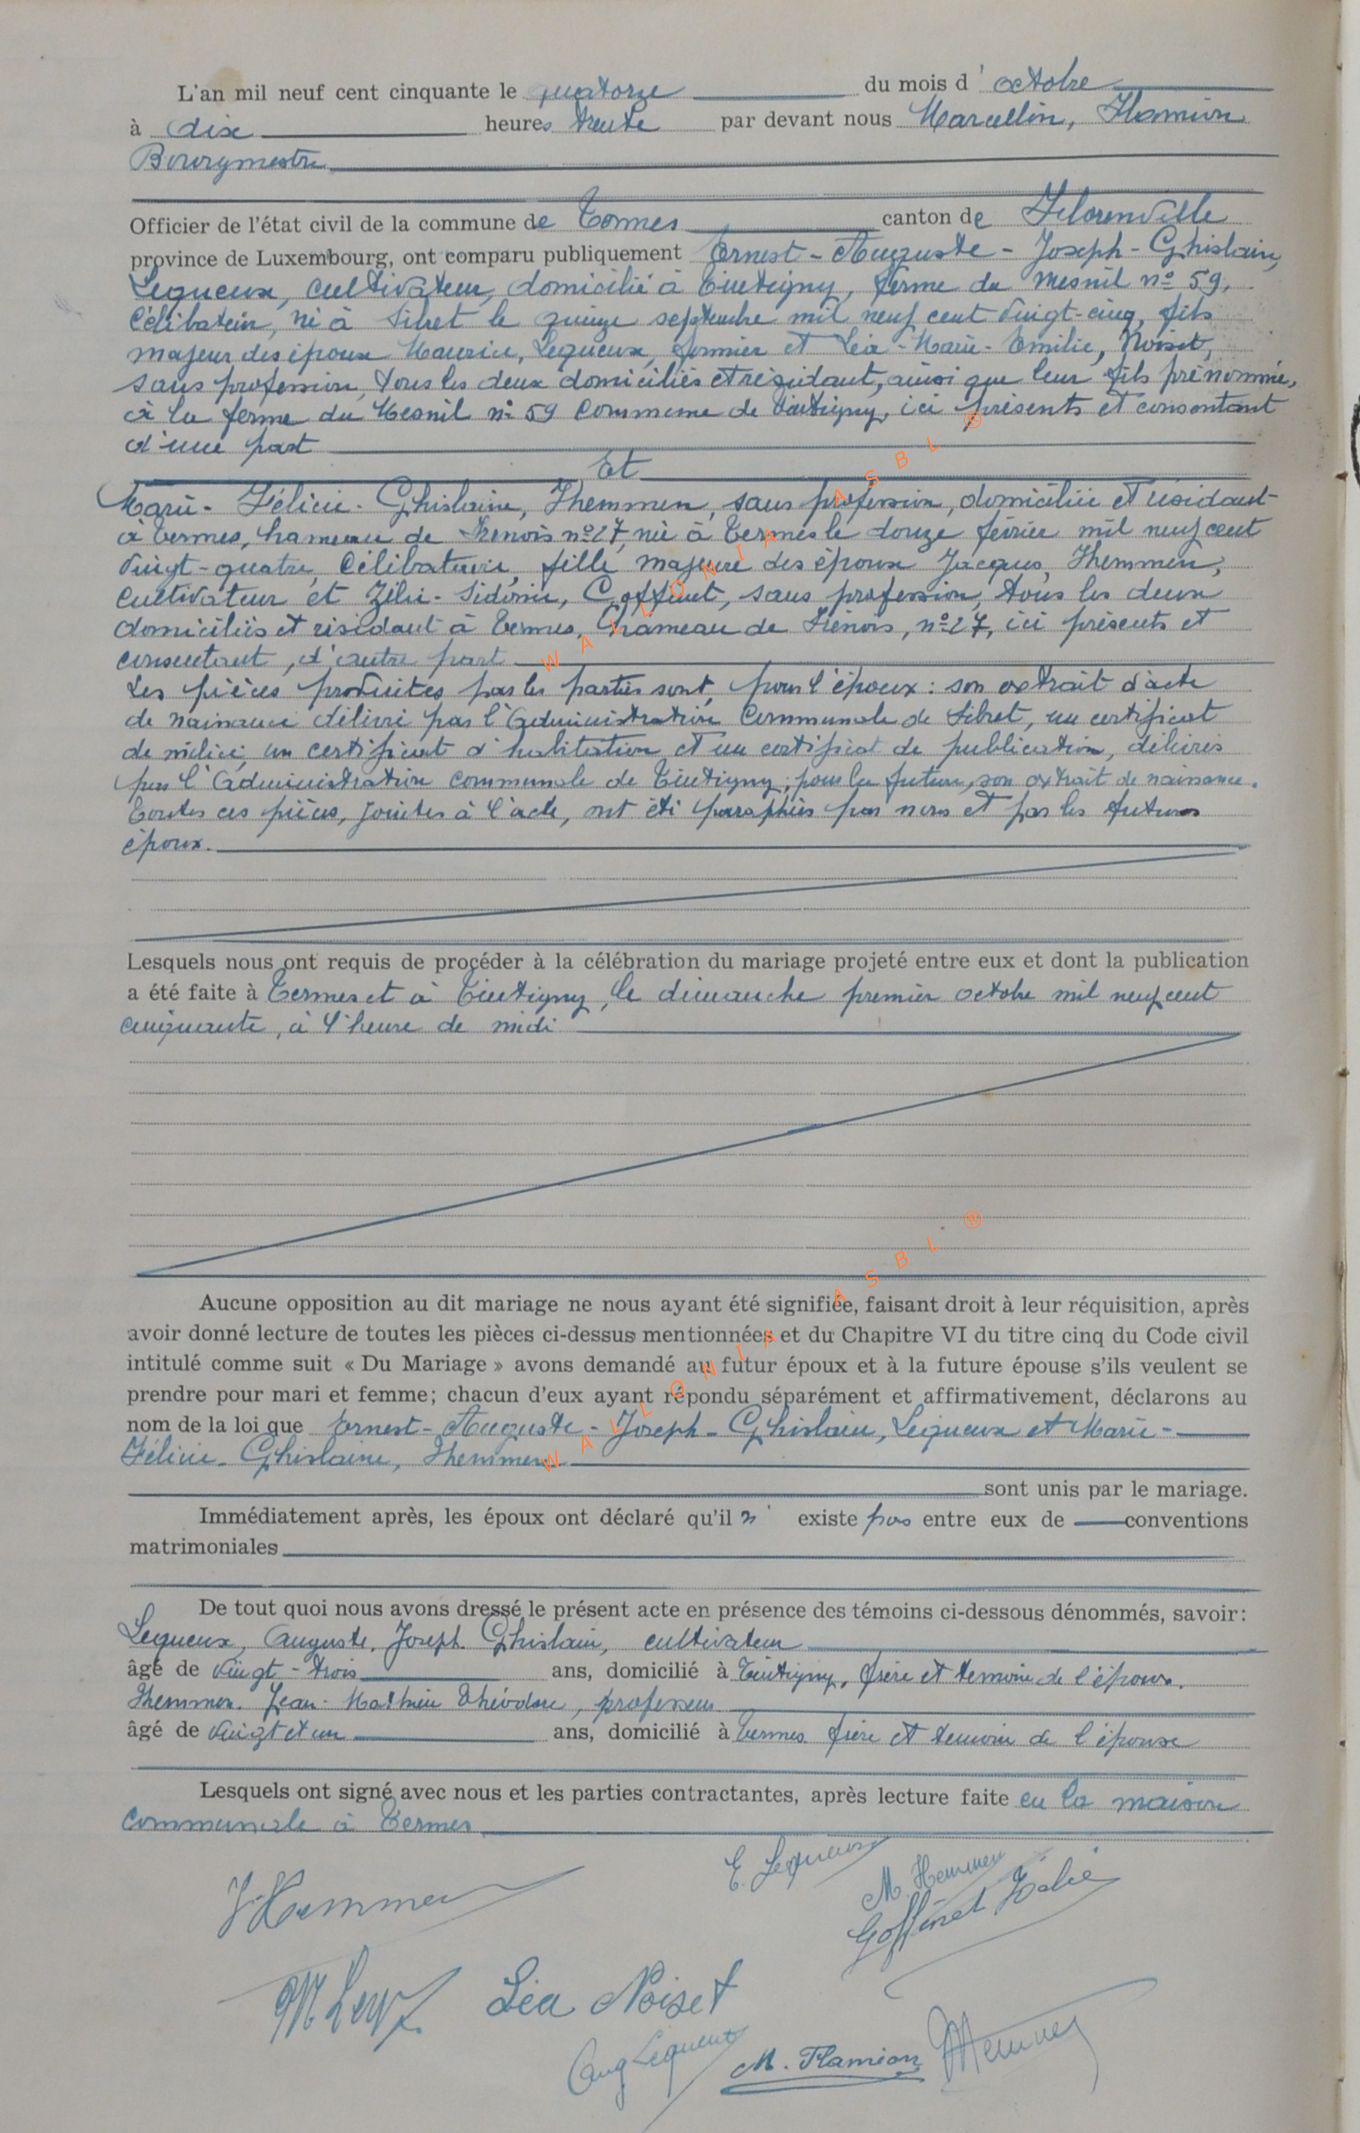 L'an mil neuf cent cinquante le quatorze du mois d' octobre
à dix heures trente par devant nous Marcellin, Flamion
Bourgmestre
Officier de l'état civil de la commune de Termes canton de Florenville
province de Luxembourg, ont comparu publiquement Ernest - Auguste - Joseph - Ghislain,
Lequeux, cultivateur, domicilié à Tintigny, ferme du Mesnil nº 59,
Célibataire, né à Sibret le quinze septembre mil neuf cent vingt-cinq, fils
majeur des époux Maurice, Lequeux, fermier et Léa - Marie - Emilie, Noiset,
sans profession, tous les deux domiciliés et résidant, ainsi que leur fils prénommé,
à la ferme du Mesnil nº 59 Commune de Tintigny, ici présents et consentant
d'une part
Et
Marie - Félicie - Ghislaine, Hemmen, sans profession, domiciliée et résidant
à Termes, hameau de Frenois nº 27, née à Termes le douze février mil neuf cent
vingt-quatre, Célibataire, fille majeure des époux Jacques, Hemmen,
Cultivateur et Zélie - Sidonie, Goffinet, sans profession, tous les deux
domiciliés et résidant à Termes, hameau de Frenois, nº 27, ici présents et
consentant, d'autre part
Les pièces produites par les parties sont, pour l'époux : son extrait d'acte
de naissance délivré par l'Administration Communale de Sibret, un certificat
de milice, un certificat d'habitation et un certificat de publication, délivrés
par l'Administration communale de Tintigny ; pour la future, son extrait de naissance.
Toutes ces pièces, jointes à l'acte, ont été paraphées par nous et par les futurs
époux.
Lesquels nous ont requis de procéder à la célébration du mariage projeté entre eux et dont la publication
a été faite à Termes et à Tintigny, le dimanche premier octobre mil neuf cent
cinquante, à l'heure de midi
Aucune opposition au dit mariage ne nous ayant été signifiée, faisant droit à leur réquisition, après
avoir donné lecture de toutes les pièces ci-dessus mentionnées et du Chapitre VI du titre cinq du Code civil
intitulé comme suit « Du Mariage » avons demandé au futur époux et à la future épouse s'ils veulent se
prendre pour mari et femme; chacun d'eux ayant répondu séparément et affirmativement, déclarons au
nom de la loi que Ernest - Auguste - Joseph - Ghislain, Lequeux et Marie -
Félicie - Ghislaine, Hemmen
sont unis par le mariage.
Immédiatement après, les époux ont déclaré qu'il n' existe pas entre eux de conventions
matrimoniales
De tout quoi nous avons dressé le présent acte en présence des témoins ci-dessous dénommés, savoir:
Lequeux, Auguste, Joseph Ghislain, cultivateur
âgé de vingt - trois ans, domicilié à Tintigny, frère et témoin de l'époux.
Hemmen. Jean - Mathieu Théodore, professeur
âgé de vingt et un ans, domicilié à Termes frère et témoin de l'épouse
Lesquels ont signé avec nous et les parties contractantes, après lecture faite en la maison
communale à Termes
J. Hemmen
E. Lequeux
M. Hemmen
Goffinet Zélie
Léa Noiset
Aug Lequeux
M. Flamion
Hemmen
WALLONIA ASBL ®
WALLONIA ASBL ®